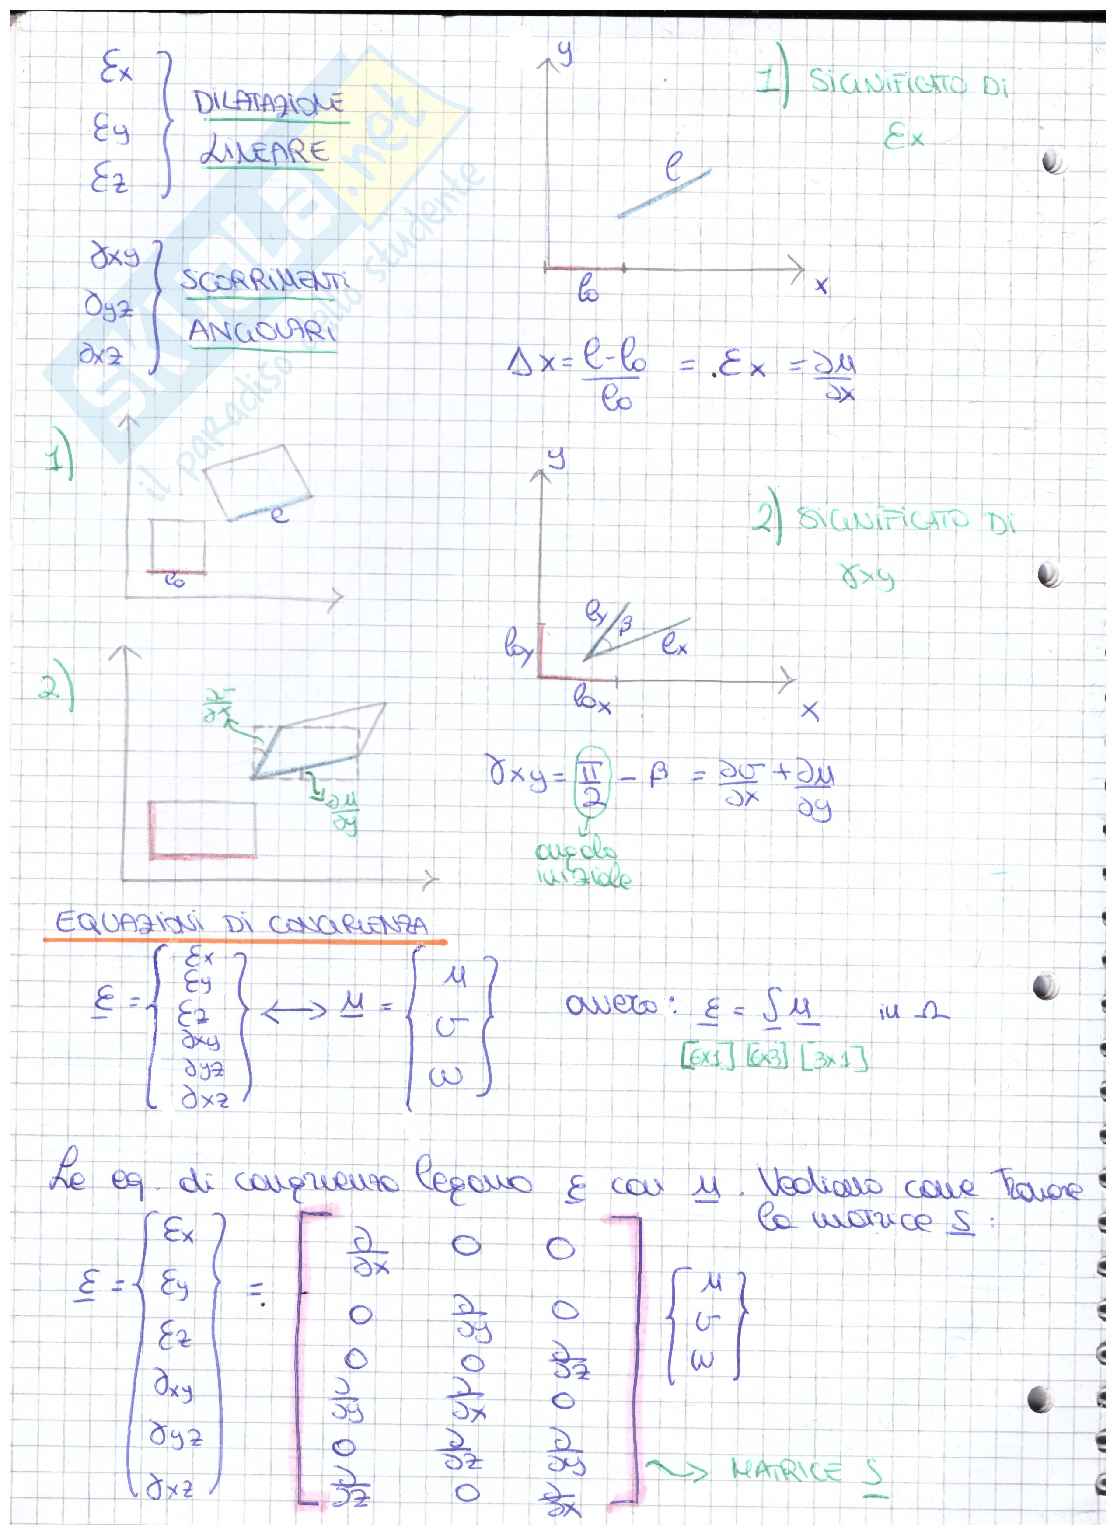 εx
εy
εz
DILATAZIONE
LINEARE
γxy
γyz
γxz
SCORRIMENTI
ANGOLARI
SKUOLA.net
il paradiso dello studente
y
l
l₀
x
1) SIGNIFICATO DI
εx
Δx = (l - l₀)/l₀ = εx = ∂u/∂x
1)
l
l₀
y
ly
β
lx
l₀y
l₀x
x
2) SIGNIFICATO DI
γxy
2)
∂v/∂x
∂u/∂y
γxy = π/2 - β = ∂v/∂x + ∂u/∂y
angolo
iniziale
EQUAZIONI DI CONGRUENZA
ε = { εx εy εz γxy γyz γxz } ⟷ u = { u v w } ovvero: ε = S u in Ω
[6x1] [6x3] [3x1]
Le eq. di congruenza legano ε con u. Vediamo come trovare
la matrice S:
ε = { εx εy εz γxy γyz γxz } =
∂/∂x 0 0
0 ∂/∂y 0
0 0 ∂/∂z
∂/∂y ∂/∂x 0
0 ∂/∂z ∂/∂y
∂/∂z 0 ∂/∂x
{ u v w }
MATRICE S